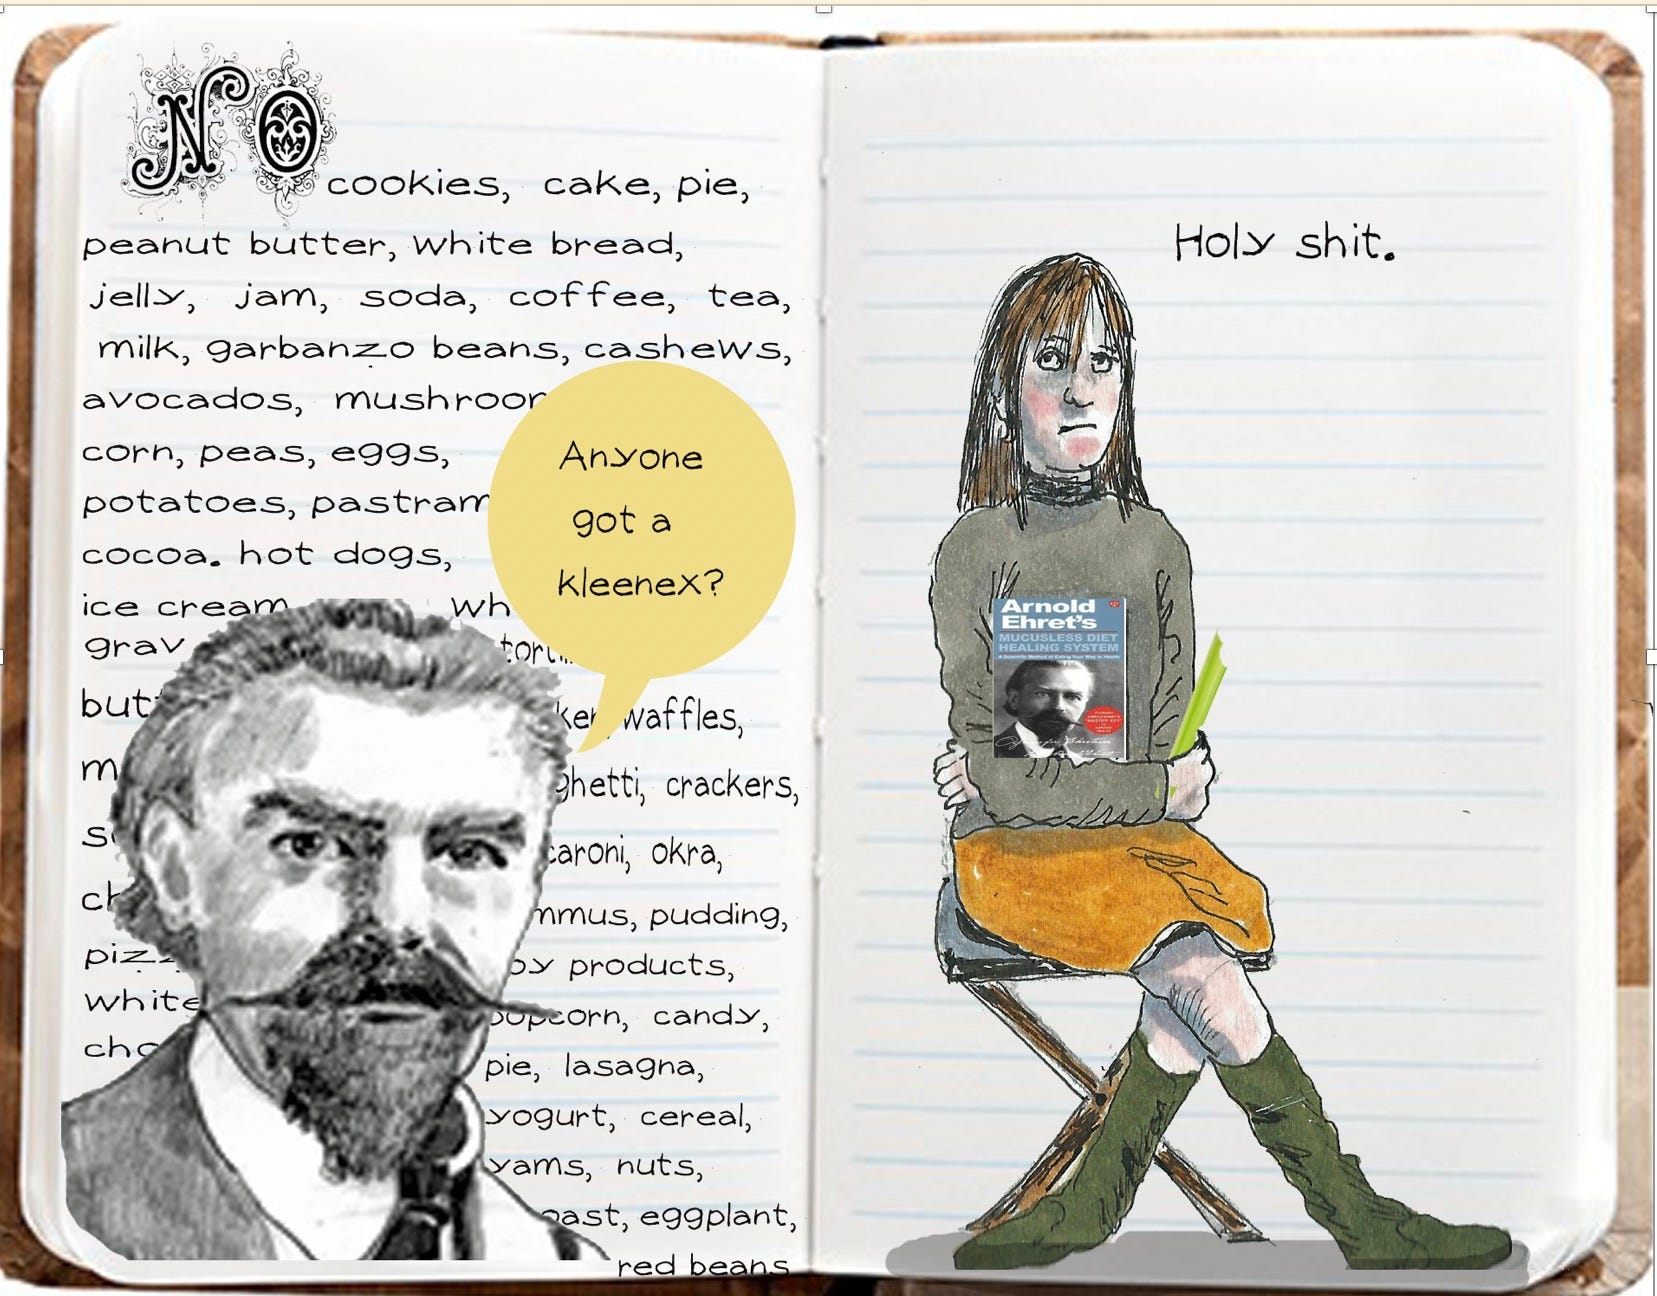 NO
cookies, cake, pie,
peanut butter, white bread,
jelly, jam, soda, coffee, tea,
milk, garbanzo beans, cashews,
avocados, mushroom
corn, peas, eggs,
potatoes, pastram
cocoa. hot dogs,
ice cream wh
grav
waffles,
ghetti, crackers,
caroni, okra,
mmus, pudding,
products,
popcorn, candy,
white
pie, lasagna,
yogurt, cereal,
yams, nuts,
oast, eggplant,
red beans
Anyone
got a
kleenex?
Holy shit.
Arnold
Ehret's
MUCUSLESS DIET
HEALING SYSTEM
A Scientific Method of Eating Your Way to Health